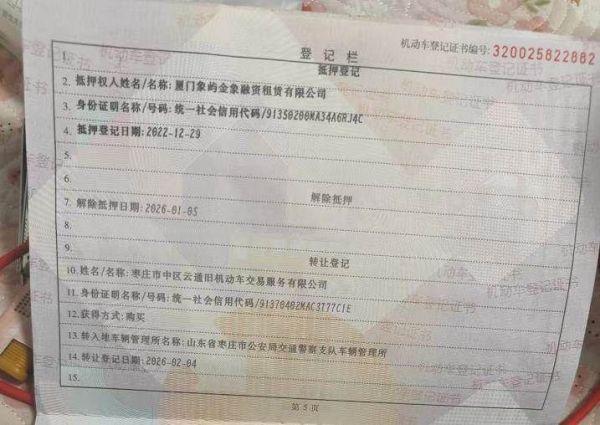 机动车登记证书编号: 320025822882
登记栏
1.
抵押登记
2. 抵押权人姓名/名称: 厦门象屿金象融资租赁有限公司
3. 身份证明名称/号码: 统一社会信用代码/91350200MA34A6RJ4C
4. 抵押登记日期: 2022-12-29
5.
6.
解除抵押
7. 解除抵押日期: 2026-01-05
8.
9.
转让登记
10. 姓名/名称: 枣庄市中区云通旧机动车交易服务有限公司
11. 身份证明名称/号码: 统一社会信用代码/91370402MAC3T77C1E
12. 获得方式: 购买
13. 转入地车辆管理所名称: 山东省枣庄市公安局交通警察支队车辆管理所
14. 转让登记日期: 2026-02-04
15.
第 5 页